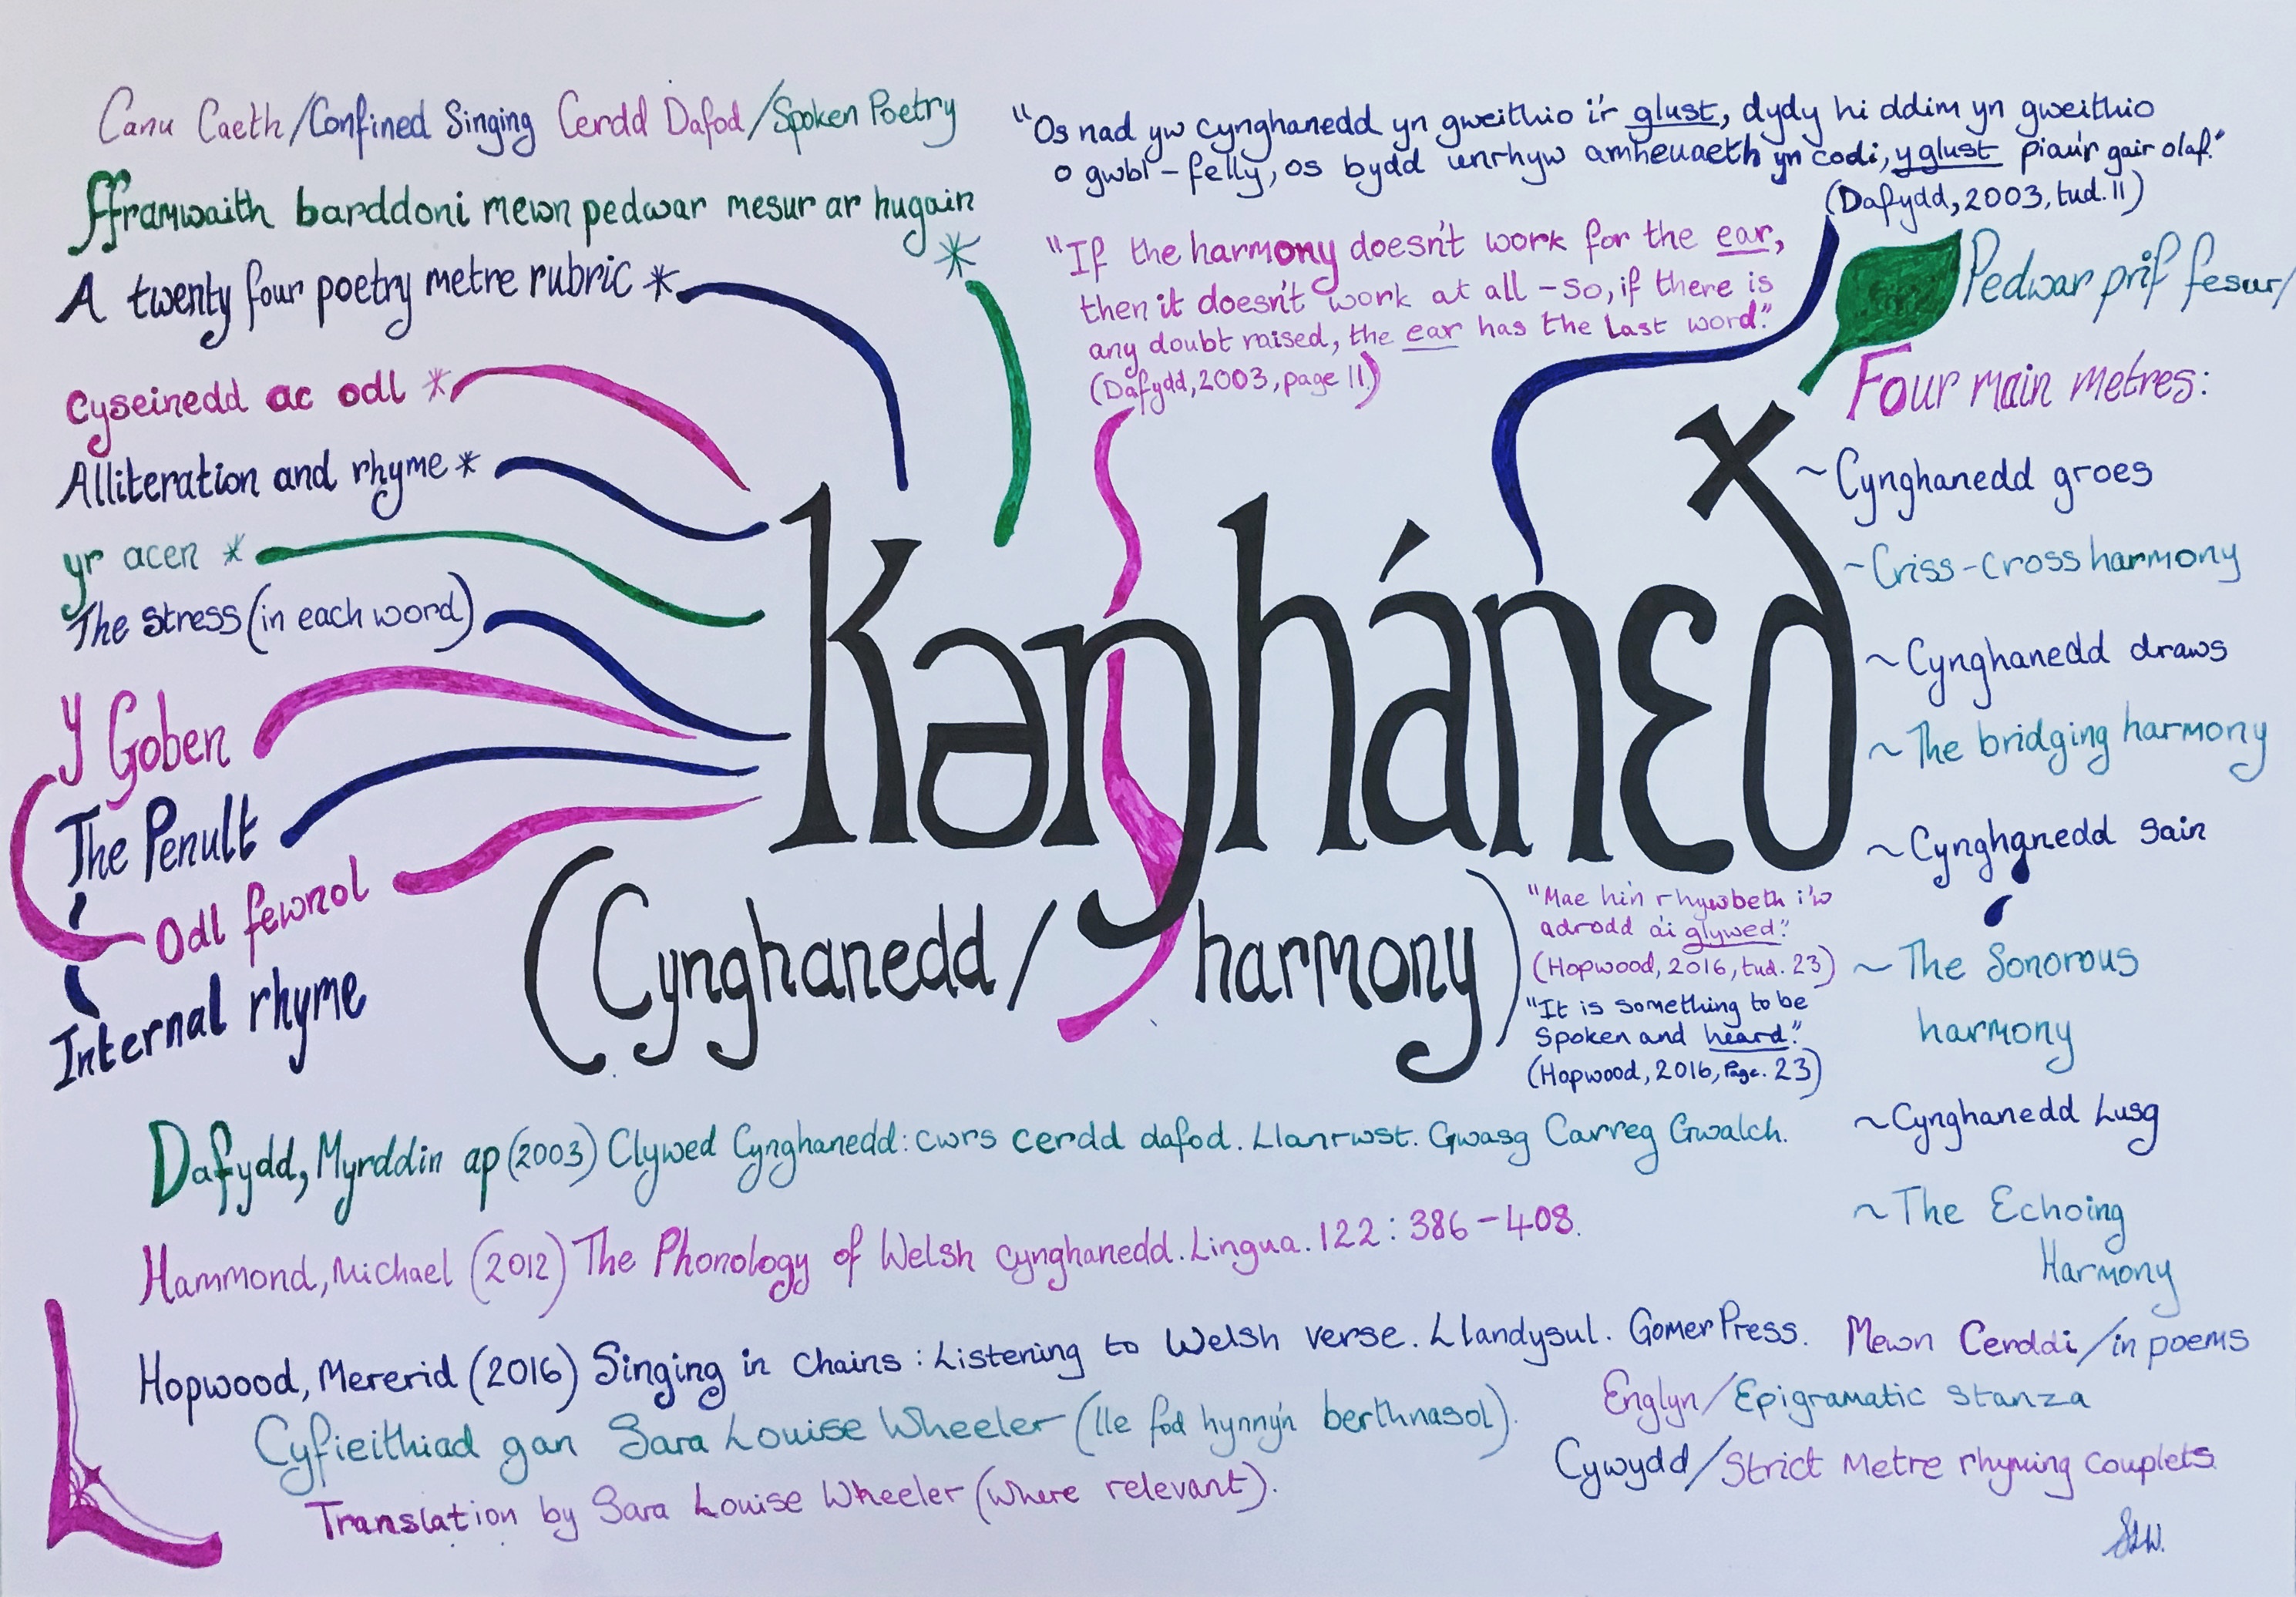 Canu Caeth/Confined Singing Cerdd Dafod/Spoken Poetry
fframwaith barddoni mewn pedwar mesur ar hugain
*
A twenty four poetry metre rubric *
cyseinedd ac odl *
Alliteration and rhyme *
yr acen *
The stress (in each word)
Y Goben
The Penult
Odl fewnol
Internal rhyme
"Os nad yw cynghanedd yn gweithio i'r glust, dydy hi ddim yn gweithio
o gwbl – felly, os bydd unrhyw amheuaeth yn codi, y glust piau'r gair olaf."
(Dafydd, 2003, tud. 11)
"If the harmony doesn't work for the ear,
then it doesn't work at all – so, if there is
any doubt raised, the ear has the last word."
(Dafydd, 2003, page 11)
Kəŋhánɛð
(Cynghanedd/harmony)
Pedwar prif fesur/
Four main metres:
~Cynghanedd groes
~Criss-cross harmony
~Cynghanedd draws
~The bridging harmony
~Cynghanedd sain
~The Sonorous
harmony
~Cynghanedd Lusg
~The Echoing
Harmony
"Mae hi'n rhywbeth i'w
adrodd a'i glywed."
(Hopwood, 2016, tud. 23)
"It is something to be
Spoken and heard."
(Hopwood, 2016, Page. 23)
Dafydd, Myrddin ap (2003) Clywed Cynghanedd: cwrs cerdd dafod. Llanrwst. Gwasg Carreg Gwalch.
Hammond, Michael (2012) The Phonology of Welsh cynghanedd. Lingua. 122: 386–408.
Hopwood, Mererid (2016) Singing in Chains: Listening to Welsh verse. Llandysul. Gomer Press.
Cyfieithiad gan Sara Louise Wheeler (lle fod hynny'n berthnasol).
Translation by Sara Louise Wheeler (where relevant).
Mewn Cerddi/in poems
Englyn/Epigramatic stanza
Cywydd/Strict Metre rhyming couplets.
SLW.